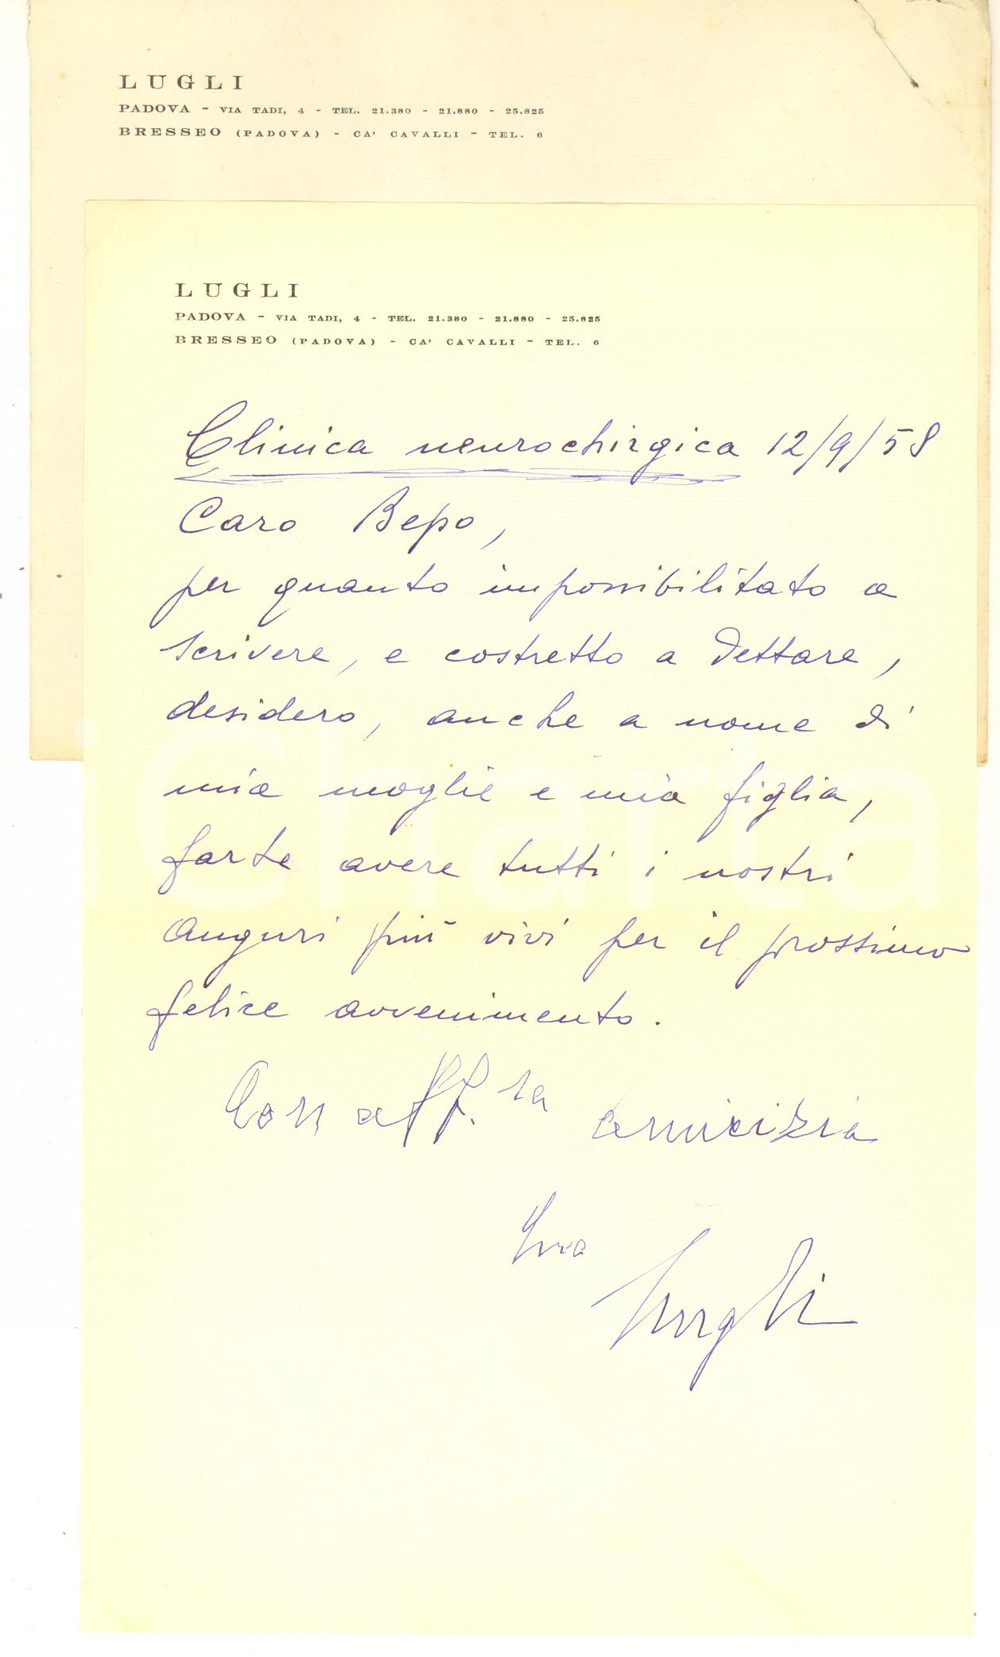 LUGLI
PADOVA - VIA TADI, 4 - TEL. 21.380 - 21.880 - 25.825
BRESSEO (PADOVA) - CA' CAVALLI - TEL. 6
LUGLI
PADOVA - VIA TADI, 4 - TEL. 21.380 - 21.880 - 25.825
BRESSEO (PADOVA) - CA' CAVALLI - TEL. 6
Clinica neurochirgica 12/9/58
Caro Bepo,
per quanto impossibilitato a
scrivere, e costretto a dettare,
desidero, anche a nome di
mia moglie e mia figlia,
farte avere tutti i nostri
auguri più vivi per il prossimo
felice avvenimento.
Con aff.ta amicizia
Lugli